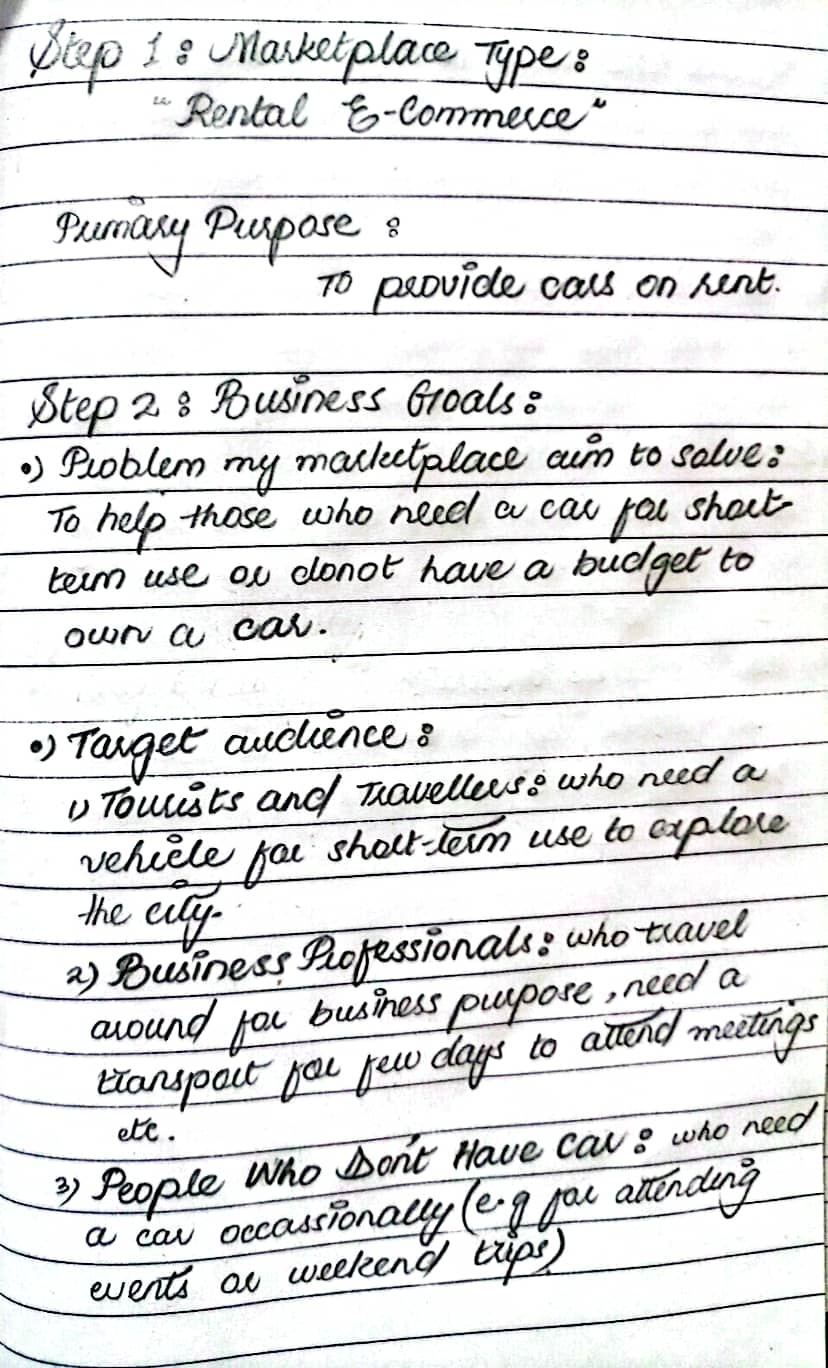 Step 1 : Marketplace Type :
"Rental E-Commerce"
Primary Purpose :
To provide cars on rent.
Step 2 : Business Goals :
•) Problem my marketplace aim to solve :
To help those who need a car for short-
term use or donot have a budget to
own a car.
•) Target audience :
1) Tourists and Travellers : who need a
vehicle for short-term use to explore
the city.
2) Business Professionals : who travel
around for business purpose, need a
transport for few days to attend meetings
etc.
3) People Who Don't Have Car : who need
a car occassionally (e.g for attending
events or weekend trips)